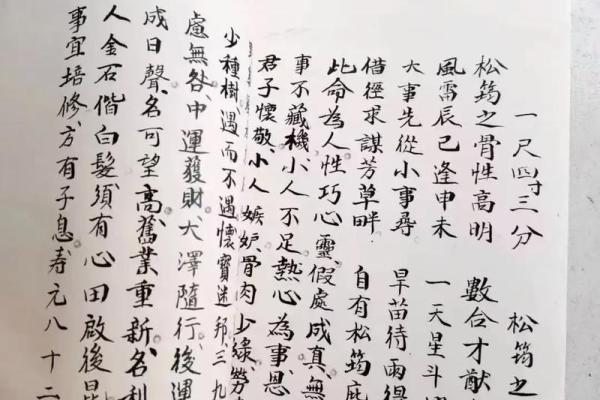 一尺四寸三分 松筠之
松筠之骨性高明 數合才猷
風雲辰巳逢申未 一天星斗
大事先從小事尋 早苗待雨得
借徑求謀芳草畔 自有松筠庇
此命為人性巧心靈、假處成真、無
事不藏機、小人不足、熱心為事、恩
君子懷敬、小人嫉妒、骨肉少緣、勞
少種樹、遇而不遇、懷寶迷邦、三九
慮無咎、中運獲財、大澤隨行、後運
成日、聲名可望高、舊業重新、名利
人金石偕白髮、須有心田啟後昆
事宜培修、方有子息、壽元八十二